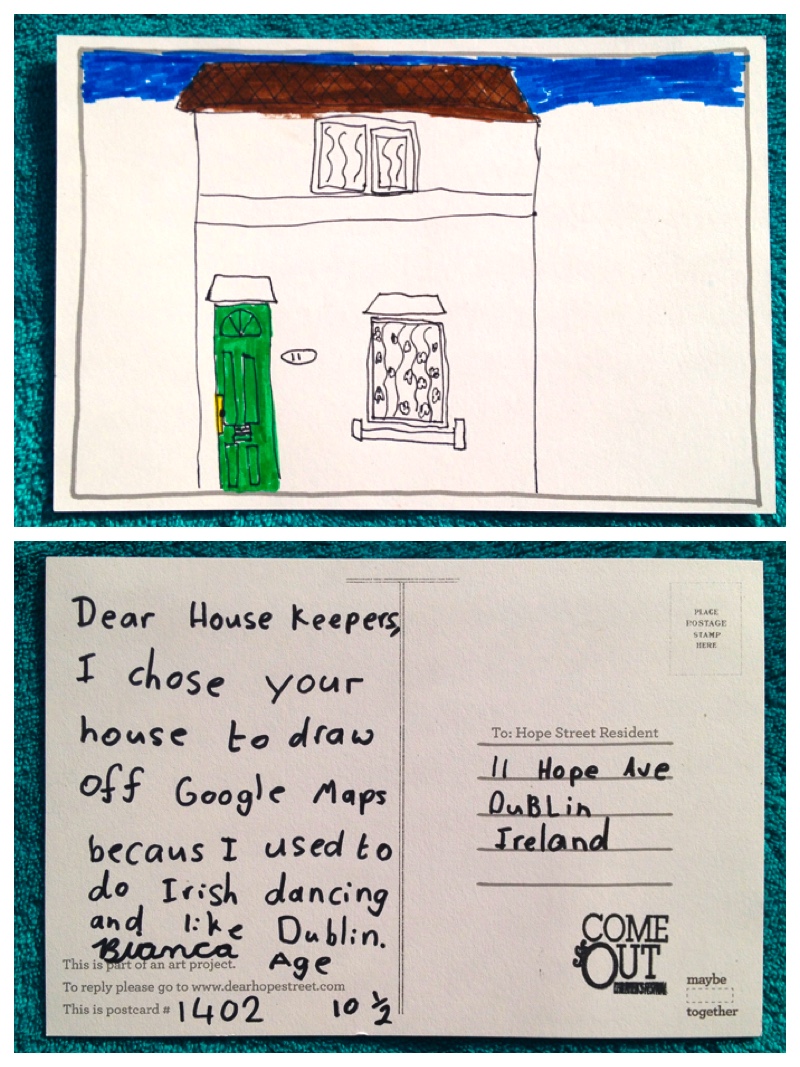 11
Dear House Keepers,
I chose your
house to draw
off Google Maps
becaus I used to
do Irish dancing
and like Dublin.
Bianca Age
10 ½
This is part of an art project.
To reply please go to www.dearhopestreet.com
This is postcard # 1402
PLACE
POSTAGE
STAMP
HERE
To: Hope Street Resident
11 Hope Ave
DuBLin
Ireland
COME
OUT
maybe
together